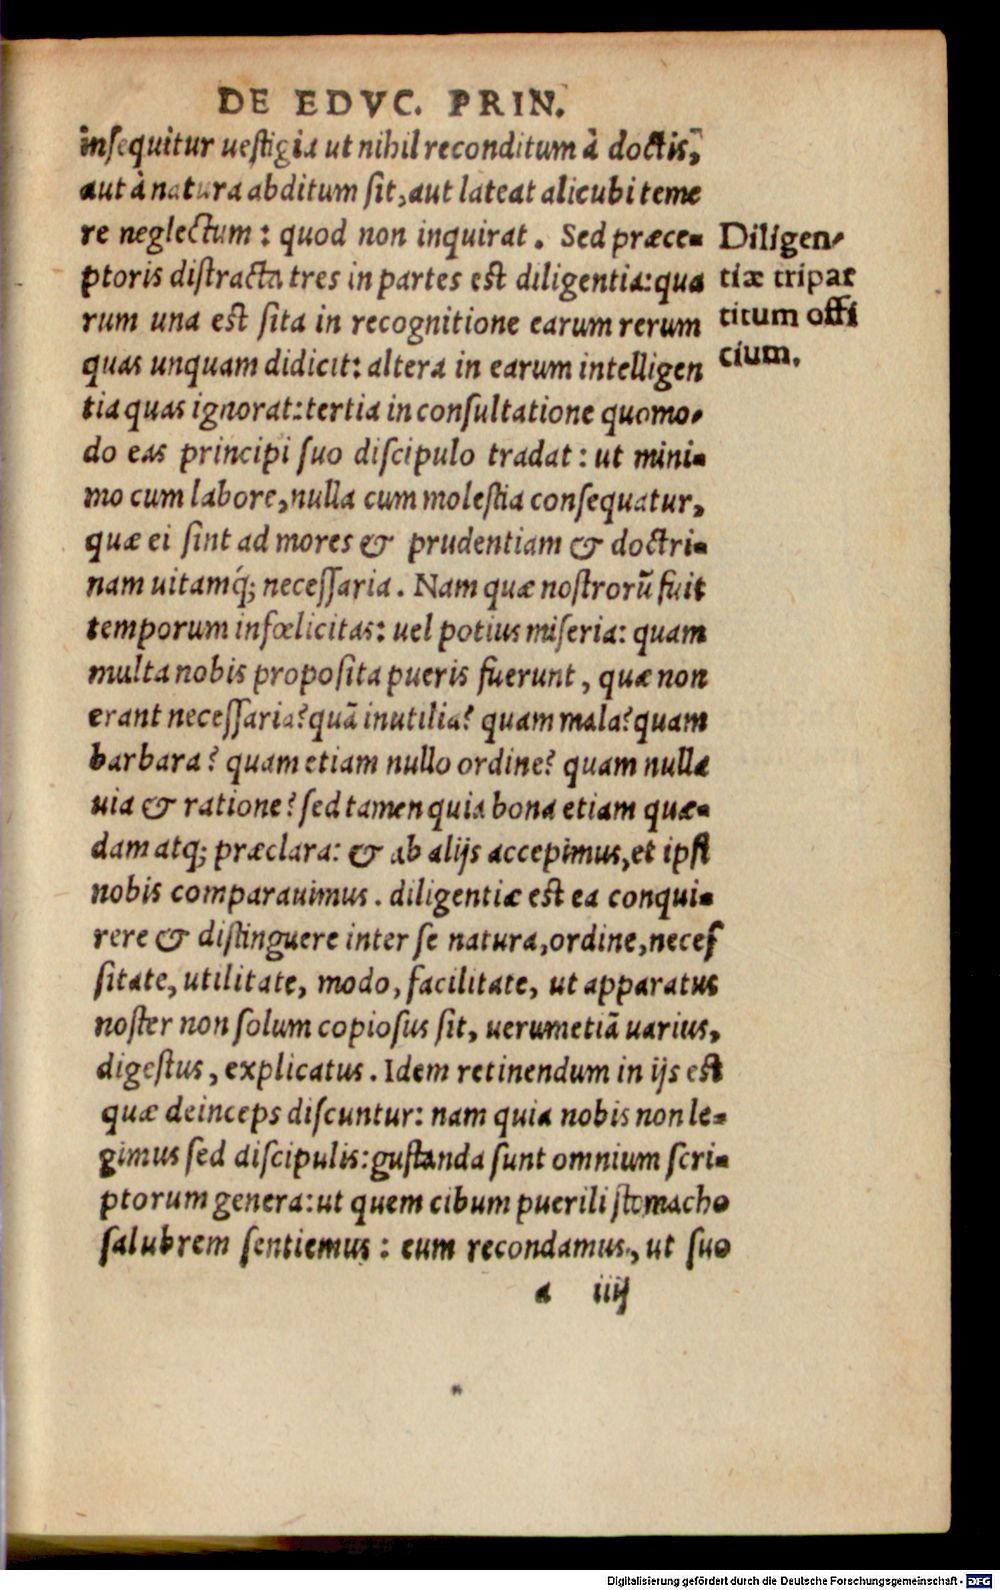 DE EDVC. PRIN.
insequitur uestigia ut nihil reconditum à doctis,
aut à natura abditum sit, aut lateat alicubi teme
re neglectum: quod non inquirat. Sed præce-
ptoris distracta tres in partes est diligentia: qua
rum una est sita in recognitione earum rerum
quas unquam didicit: altera in earum intelligen
tia quas ignorat: tertia in consultatione quomo-
do eas principi suo discipulo tradat: ut mini-
mo cum labore, nulla cum molestia consequatur,
quæ ei sint ad mores & prudentiam & doctri-
nam uitamq́; necessaria. Nam quæ nostrorũ fuit
temporum infœlicitas: uel potius miseria: quam
multa nobis proposita pueris fuerunt, quæ non
erant necessaria? quã inutilia? quam mala? quam
barbara? quam etiam nullo ordine? quam nulla
uia & ratione? sed tamen quia bona etiam quæ-
dam atq; præclara: & ab alijs accepimus, et ipsi
nobis comparauimus. diligentiæ est ea conqui-
rere & distinguere inter se natura, ordine, neces
sitate, utilitate, modo, facilitate, ut apparatus
noster non solum copiosus sit, uerumetiã uarius,
digestus, explicatus. Idem retinendum in ijs est
quæ deinceps discuntur: nam quia nobis non le-
gimus sed discipulis: gustanda sunt omnium scri-
ptorum genera: ut quem cibum puerili stomacho
salubrem sentiemus: eum recondamus, ut suo
a iiij
Diligen-
tiæ tripar
titum offi
cium.
Digitalisierung gefördert durch die Deutsche Forschungsgemeinschaft - DFG